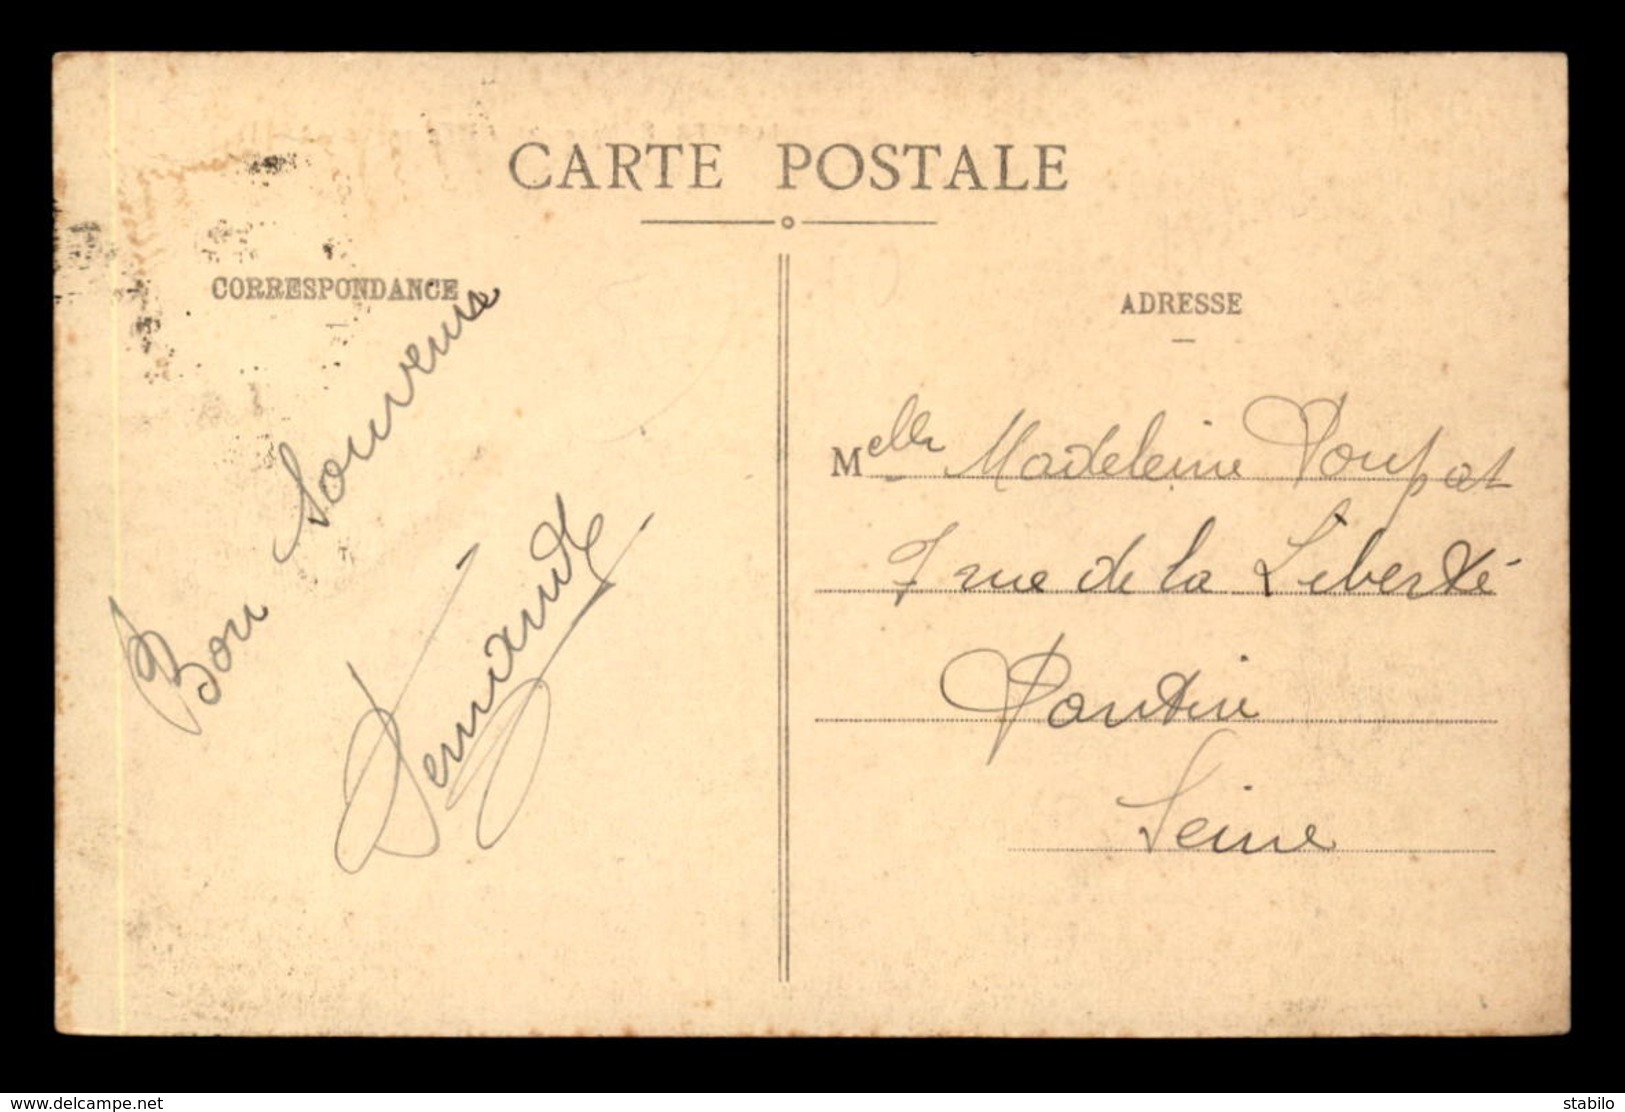 CARTE POSTALE
CORRESPONDANCE
Bon Souvenir
Fernande
ADRESSE
Melle Madeleine Poupat
7 rue de la Liberté
Pantin
Seine
www.delcampe.net
stabilo